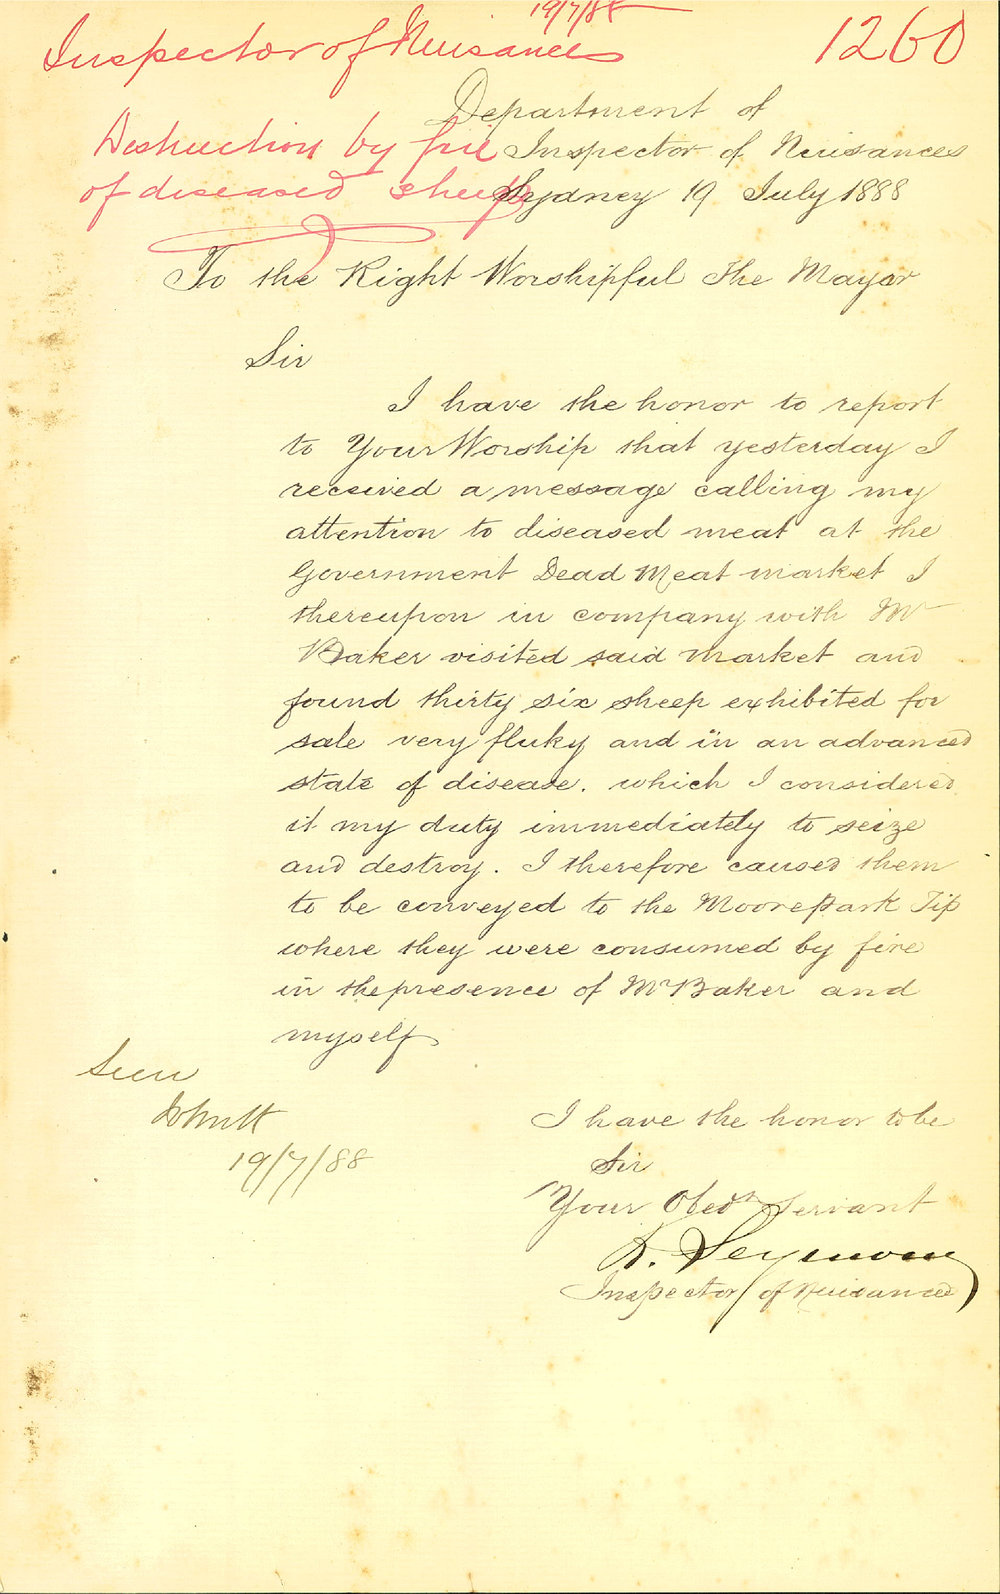 19/7/88
Inspector of Nuisances
1260
Destruction by fire
of diseased sheep
Department of
Inspector of Nuisances
Sydney 19 July 1888
To the Right Worshipful The Mayor
Sir
I have the honor to report
to Your Worship that yesterday I
received a message calling my
attention to diseased meat at the
Government Dead Meat market I
thereupon in company with Mr
Baker visited said Market and
found thirty six sheep exhibited for
sale very fluky and in an advanced
state of disease. which I considered
it my duty immediately to seize
and destroy. I therefore caused them
to be conveyed to the Moore Park Tip
where they were consumed by fire
in the presence of Mr Baker and
myself
Seen
19/7/88
I have the honor to be
Sir
Your Obedt Servant
R. Seymour
Inspector of Nuisances